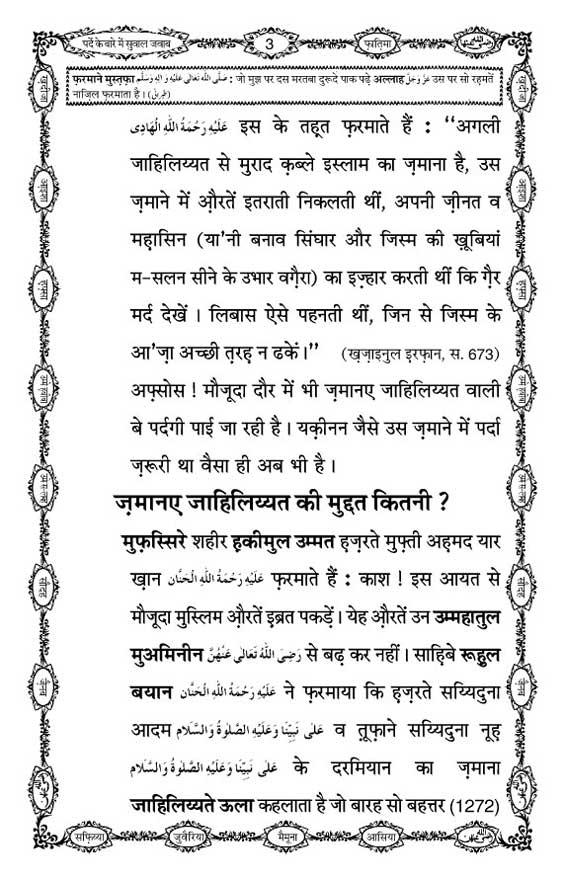 पर्दे के बारे में सुवाल जवाब
3
फ़ातिमा
फ़रमाने मुस्तफ़ा صَلَّى اللهُ تَعَالٰى عَلَيْهِ وَاٰلِهٖ وَسَلَّم : जो मुझ पर दस मरतबा दुरूदे पाक पढ़े अल्लाह عَزَّ وَجَلَّ उस पर सो रहमतें
नाज़िल फ़रमाता है। (طبرانی)
عَلَيْهِ رَحْمَةُ اللهِ الْهَادِى इस के तह़त फ़रमाते हैं : ‘‘अगली
जाहिलिय्यत से मुराद क़ब्ले इस्लाम का ज़माना है, उस
ज़माने में औ़रतें इतराती निकलती थीं, अपनी ज़ीनत व
महासिन (या'नी बनाव सिंघार और जिस्म की ख़ूबियां
म-सलन सीने के उभार वग़ैरा) का इज़्हार करती थीं कि ग़ैर
मर्द देखें । लिबास ऐसे पहनती थीं, जिन से जिस्म के
आ'ज़ा अच्छी त़रह़ न ढकें।’’ (ख़ज़ाइनुल इरफ़ान, स. 673)
अफ़्सोस ! मौजूदा दौर में भी ज़मानए जाहिलिय्यत वाली
बे पर्दगी पाई जा रही है । यक़ीनन जैसे उस ज़माने में पर्दा
ज़रूरी था वैसा ही अब भी है ।
ज़मानए जाहिलिय्यत की मुद्दत कितनी ?
मुफ़स्सिरे शहीर ह़कीमुल उम्मत ह़ज़रते मुफ़्ती अहमद यार
ख़ान عَلَيْهِ رَحْمَةُ اللهِ الْحَنَّان फ़रमाते हैं : काश ! इस आयत से
मौजूदा मुस्लिम औ़रतें इब्रत पकड़ें । येह औ़रतें उन उम्महातुल
मुअमिनीन رَضِىَ اللهُ تَعَالٰى عَنْهُنَّ से बढ़ कर नहीं । साहिबे रूहुल
बयान عَلَيْهِ رَحْمَةُ اللهِ الْحَنَّان ने फ़रमाया कि ह़ज़रते सय्यिदुना
आदम عَلٰى نَبِيِّنَا وَعَلَيْهِ الصَّلٰوةُ وَالسَّلَام व त़ूफ़ाने सय्यिदुना नूह़
عَلٰى نَبِيِّنَا وَعَلَيْهِ الصَّلٰوةُ وَالسَّلَام के दरमियान का ज़माना
जाहिलिय्यते ऊला कहलाता है जो बारह सो बहत्तर (1272)
सफ़िय्या
जुवैरिया
मैमूना
आसिया